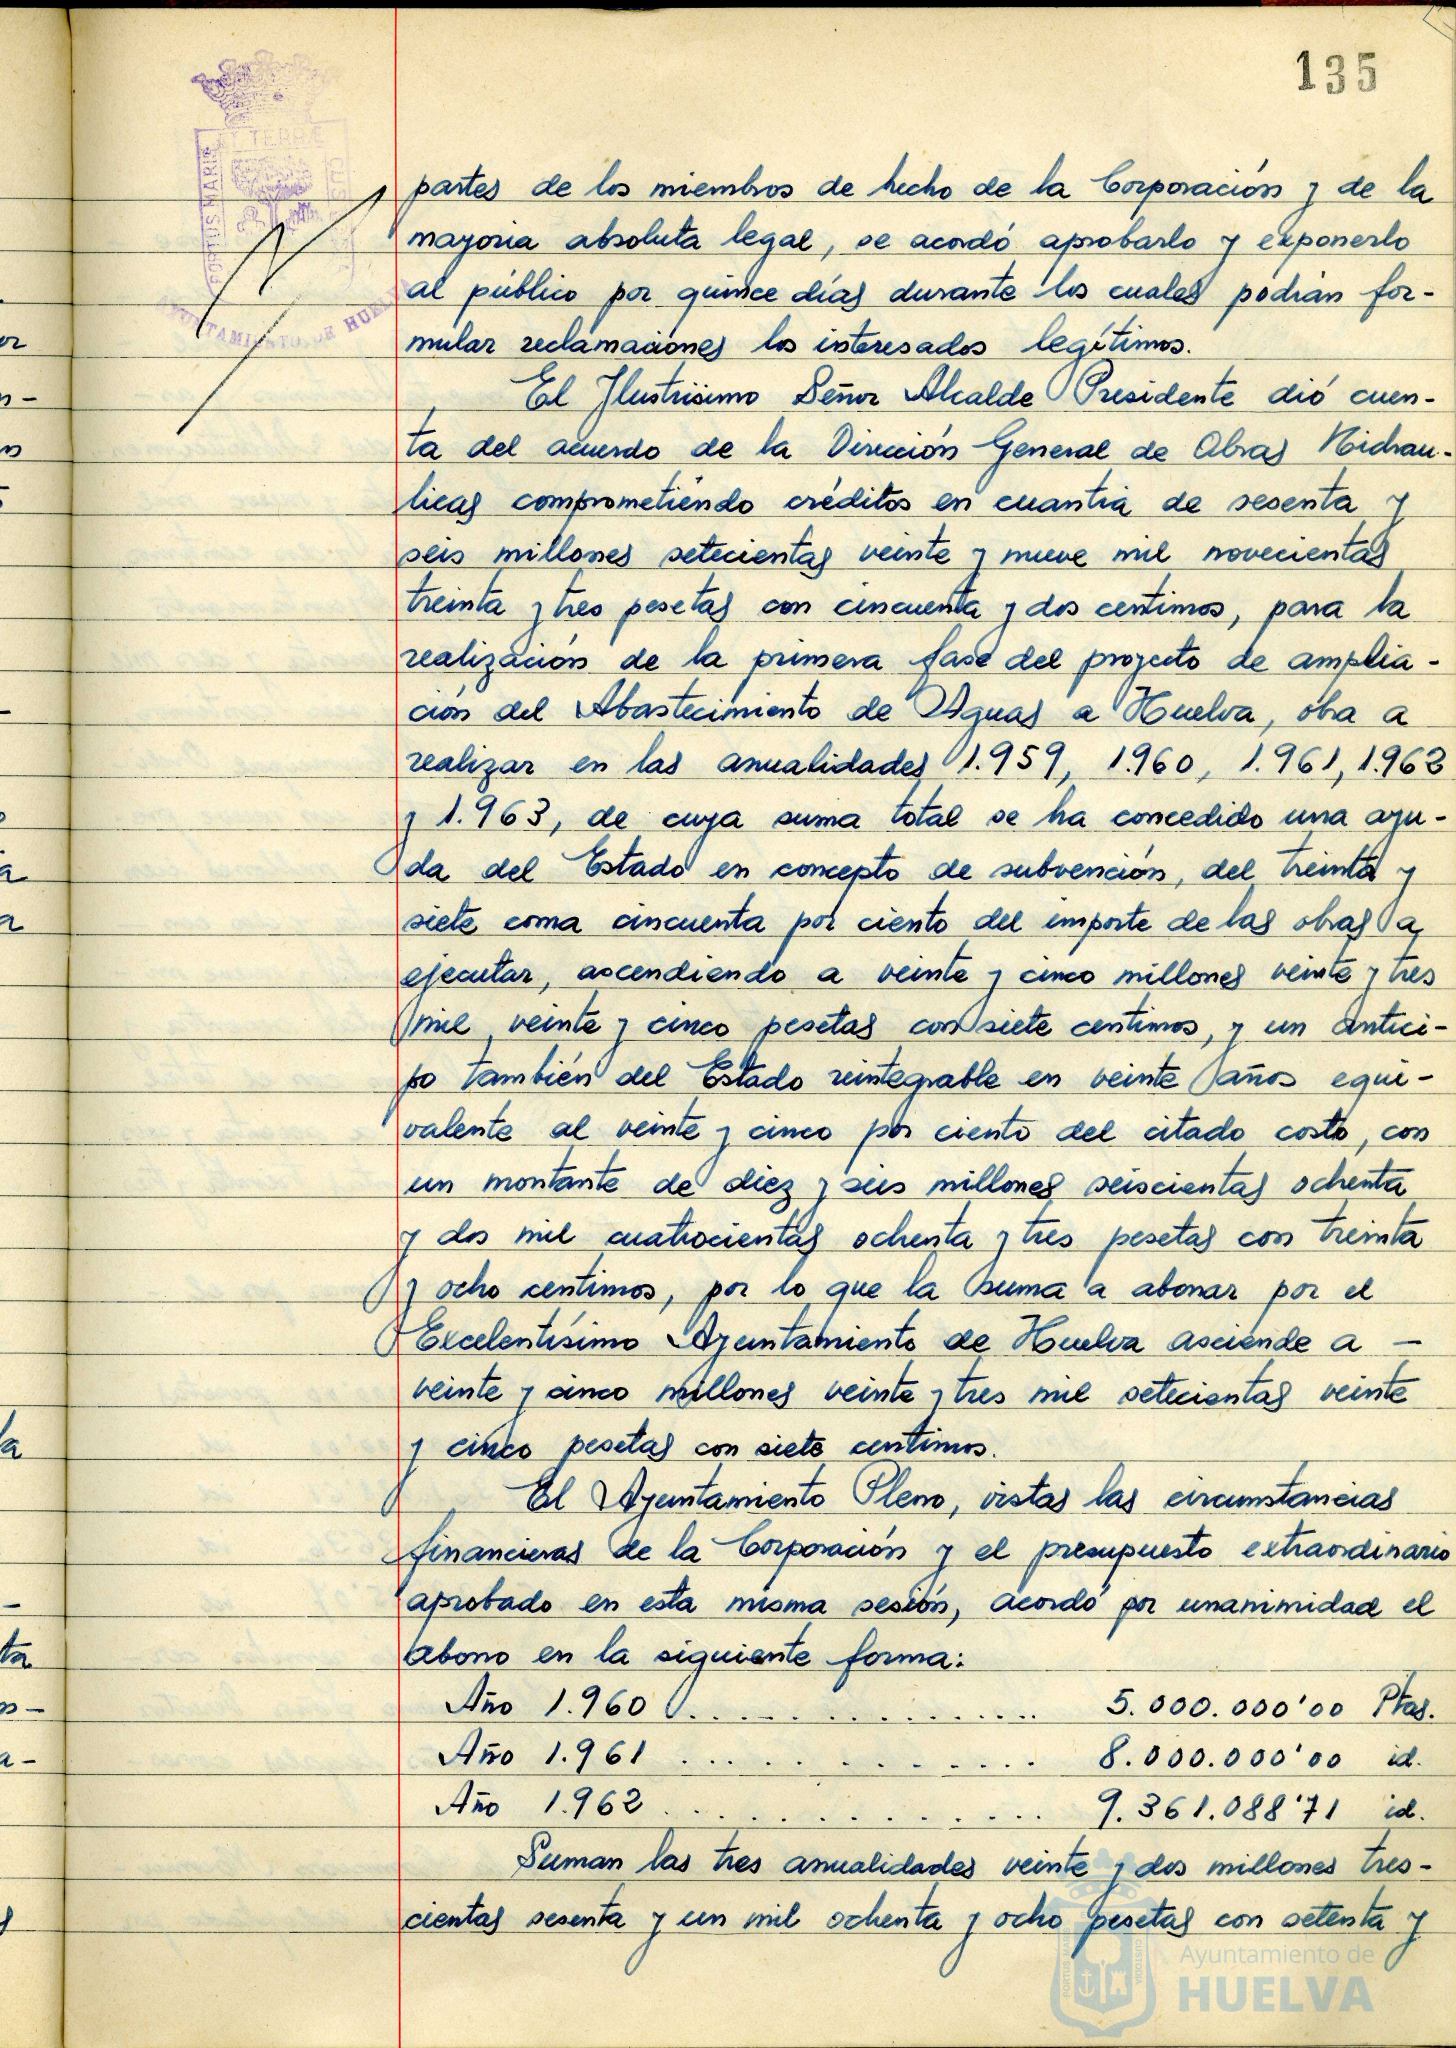 135
ET TERRÆ
PORTUS MARIS
CUSTODIA
AYUNTAMIENTO DE HUELVA
partes de los miembros de hecho de la Corporación y de la
mayoria absoluta legal, se acordó aprobarlo y exponerlo
al público por quince días durante los cuales podrán for-
mular reclamaciones los interesados legítimos.
El Ilustrísimo Señor Alcalde Presidente dió cuen-
ta del acuerdo de la Dirección General de Obras Hidrau-
licas comprometiéndo créditos en cuantia de sesenta y
seis millones setecientas veinte y nueve mil novecientas
treinta y tres pesetas con cincuenta y dos centimos, para la
realización de la primera fase del proyecto de amplia-
ción del Abastecimiento de Aguas a Huelva, obra a
realizar en las anualidades 1.959, 1.960, 1.961, 1.962
y 1.963, de cuya suma total se ha concedido una ayu-
da del Estado en concepto de subvención, del treinta y
siete coma cincuenta por ciento del importe de las obras a
ejecutar, ascendiendo a veinte y cinco millones veinte y tres
mil, veinte y cinco pesetas con siete centimos, y un antici-
po también del Estado reintegrable en veinte años equi-
valente al veinte y cinco por ciento del citado costo, con
un montante de diez y seis millones seiscientas ochenta
y dos mil cuatrocientas ochenta y tres pesetas con treinta
y ocho centimos, por lo que la suma a abonar por el
Excelentísimo Ayuntamiento de Huelva asciende a —
veinte y cinco millones veinte y tres mil setecientas veinte
y cinco pesetas con siete centimos.
El Ayuntamiento Pleno, vistas las circunstancias
financieras de la Corporación y el presupuesto extraordinario
aprobado en esta misma sesión, acordó por unanimidad el
abono en la siguiente forma:
Año 1.960 ................ 5.000.000'00 Ptas.
Año 1.961 ............. 8.000.000'00 id.
Año 1.962 .............. 9.361.088'71 id.
Suman las tres anualidades veinte y dos millones tres-
cientas sesenta y un mil ochenta y ocho pesetas con setenta y
Ayuntamiento de
HUELVA